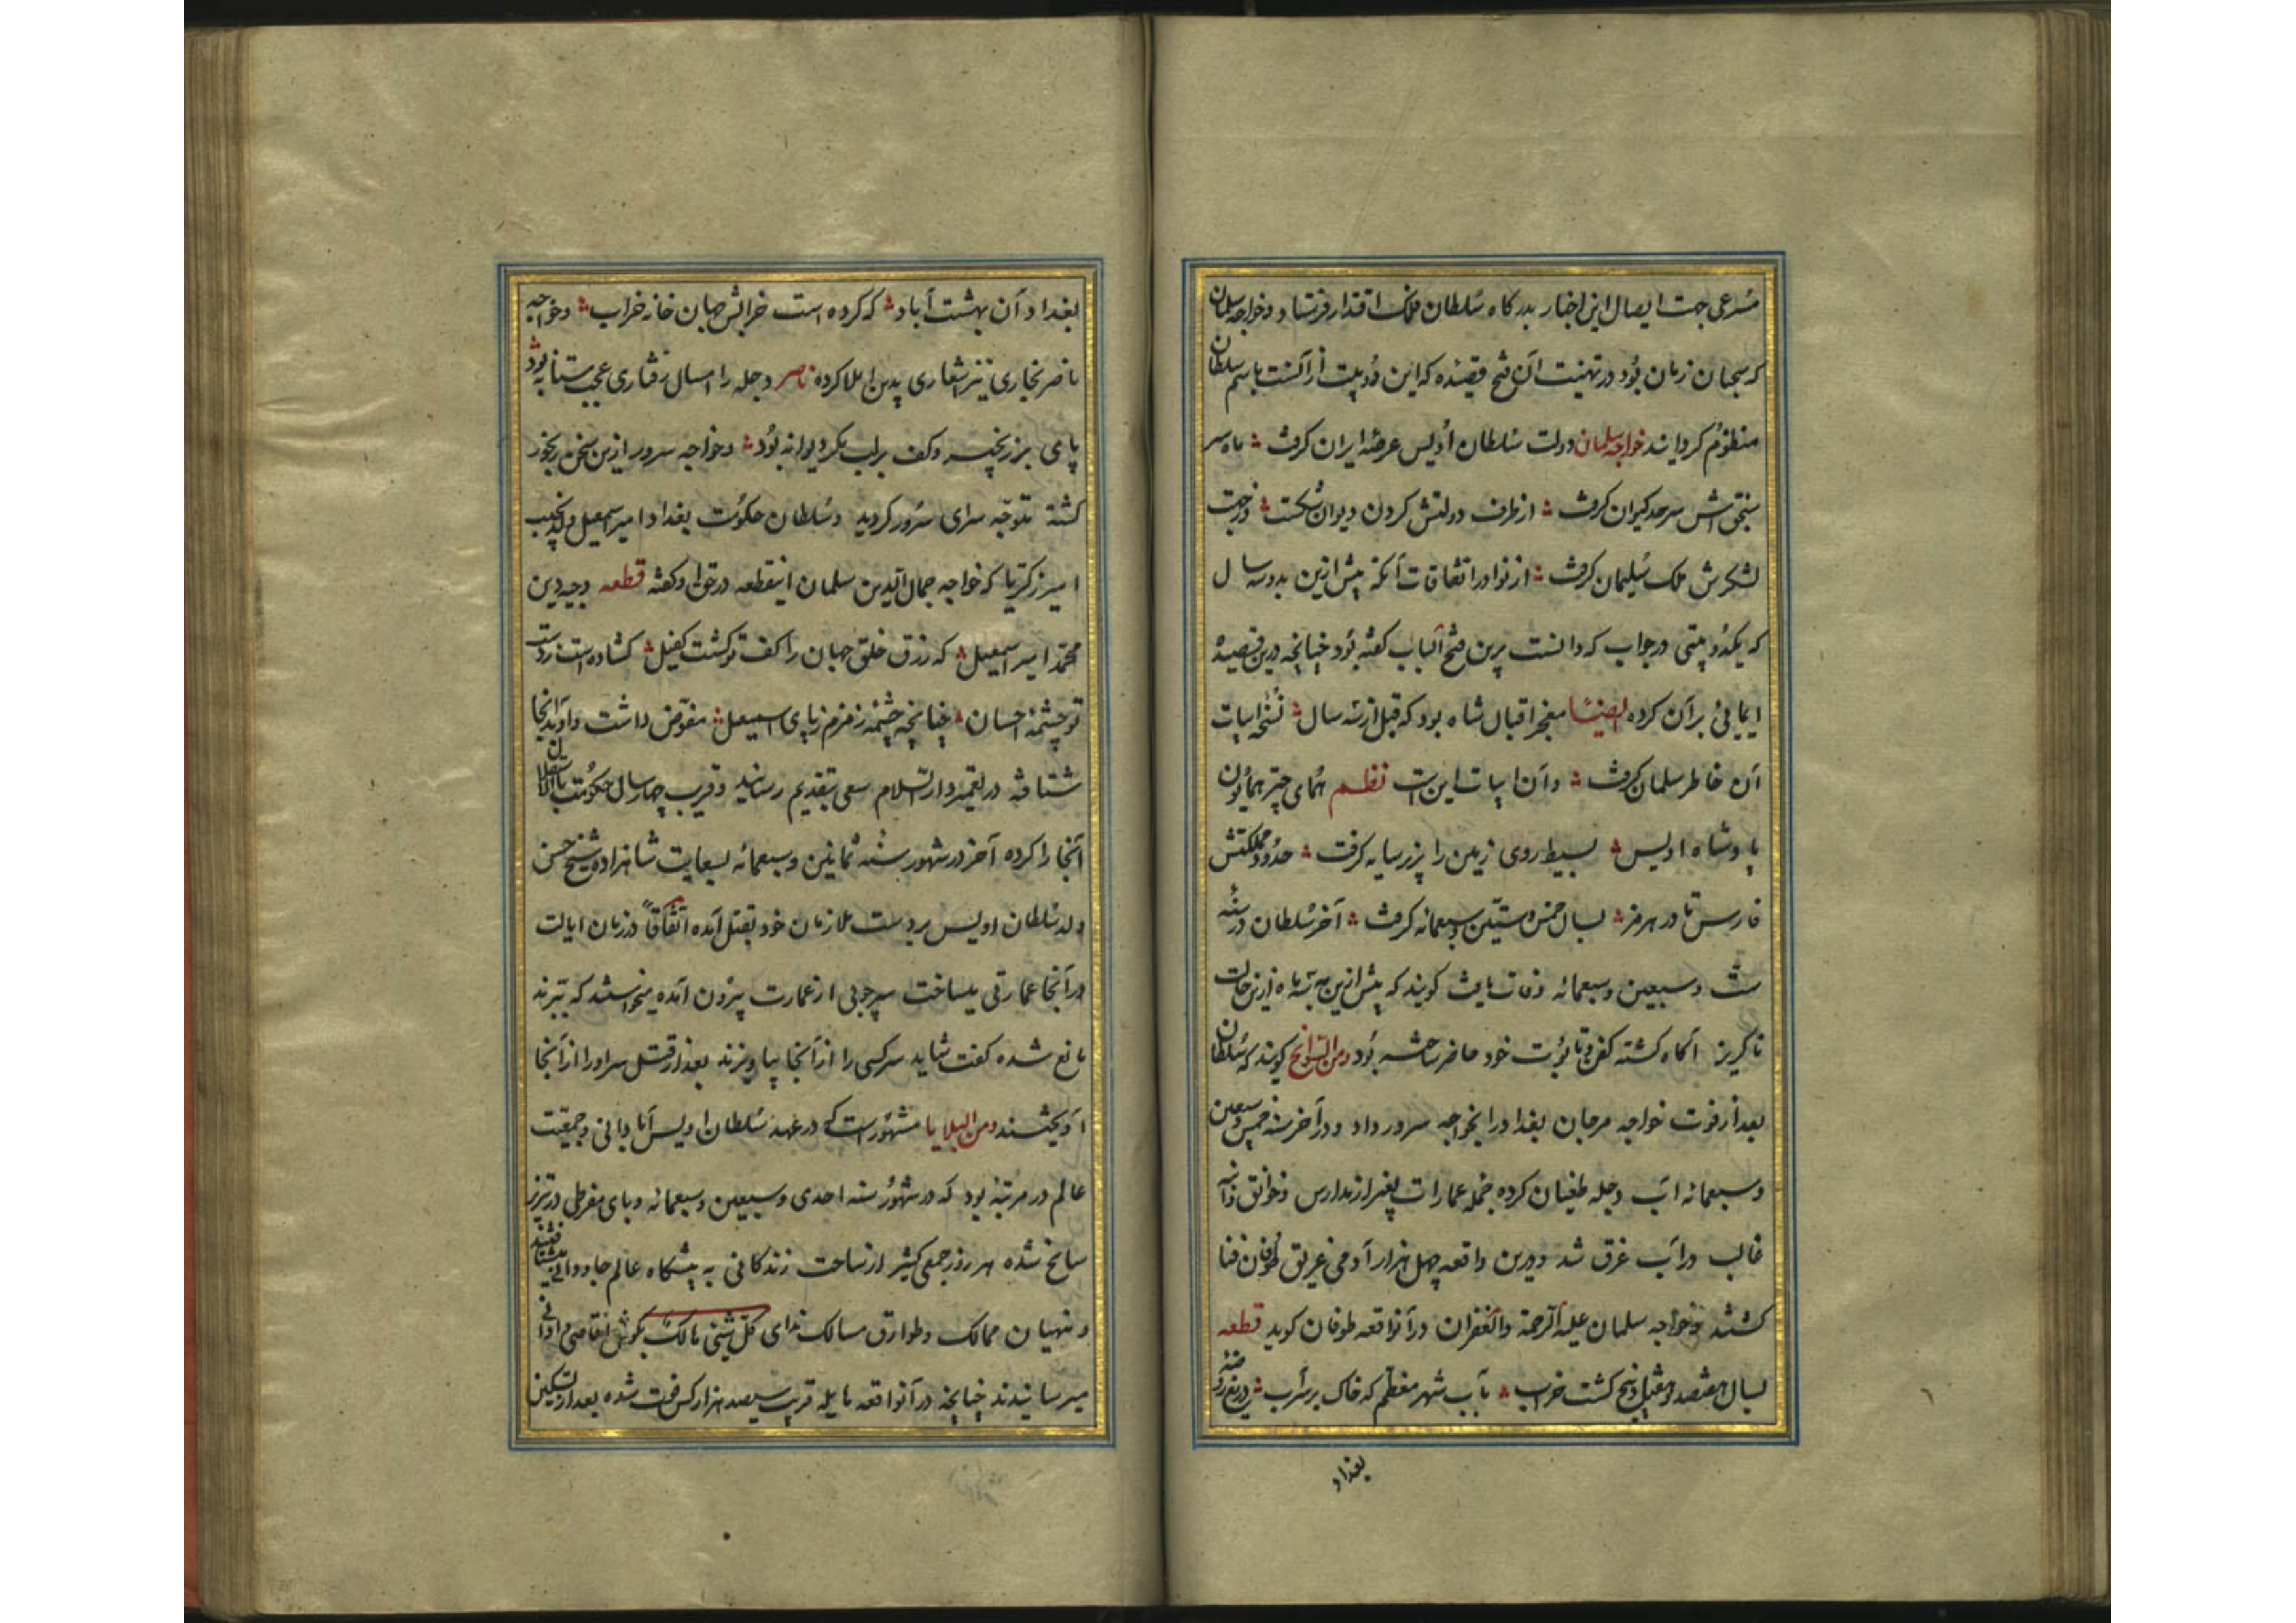 مسرعی جهت ایصال این اخبار بدرکاه سلطان فلک اقتدار فرستاد و خواجه سلمان
که سحبان زمان بود در تهنیت آن فتح قصیده که این دو بیت از آنست باسم سلطان
منظوم کردانید خواجه سلمان دولت سلطان اویس عرصه ایران کرفت ماه سر
سنجق اش سرحد کیوان کرفت از طرف دولتش کردون دیوان شکست و ز جهت
لشکرش ملک سلیمان کرفت از نوادر اتفاقات آنکه پیش ازین بدو سه سال
که یکدو بیتی در جواب که دانست برین فتح الباب کفته بود چنانچه درین قصیده
ایمائی بران کرده ایضا معجز اقبال شاه بود که قبل از سه سال نسخه ابیات
آن خاطر سلمان کرفت و آن ابیات این است نظم همای چتر همایون
پادشاه اویس بسیط روی زمین را بزیر سایه کرفت حدود مملکتش
فارس تا در هرمز بسال خمس و ستین و سبعمائه کرفت آخر سلطان در سنه
ست و سبعین و سبعمائه وفات یافت کویند که پیش ازین به سه ماه ازین حالت
ناکریز آکاه کشته کفن و تابوت خود حاضر ساخته بود ومن السوانح کویند که سلطان
بعد از فوت خواجه مرجان بغداد را بخواجه سرور داد و در آخر سنه خمس و سبعین
و سبعمائه آب دجله طغیان کرده جمله عمارات بغیر از مدارس و خوانق
غالب در آب غرق شد و درین واقعه چهل هزار آدمی غریق طوفان فنا
کشتند و خواجه سلمان علیه الرحمة والغفران در آنواقعه طوفان کوید قطعه
بسال هفتصد و هفتاد و پنج کشت خراب بآب شهر معظم که خاک بر سر آب دریغ روضه
بغداد
بغداد آن بهشت آباد که کرده است خرابش جهان خانه خراب و خواجه
ناصر بخاری نیز اشعاری بدین املا کرده ناصر دجله را امسال رفتاری عجب مستانه بود
پای بر زنجیر و کف بر لب مکر دیوانه بود و خواجه سرور ازین سخن رنجور
کشته متوجه سرای سرور کردید و سلطان حکومت بغداد امیر اسمعیل ولد نجیب
امیر زکریا که خواجه جمال الدین سلمان اینقطعه در حق او کفته قطعه وجیه دین
محمد امیر اسمعیل که رزق خلق جهان را کف تو کشت کفیل کشاده است ز دست
تو چشمه احسان چنانچه چشمه زمزم ز پای اسمعیل مفوض داشت و او بدانجا
شتافته در تعمیر دار السلام سعی بتقدیم رسانید و قریب چهار سال حکومت باستقلال
آنجا را کرده آخر در شهور سنه ثمانین و سبعمائه بسعایت شاهزاده شیخ حسن
ولد سلطان اویس بر دست ملازمان خود بقتل آمده اتفاقا در زمان ایالت
در آنجا عمارتی میساخت سر چوبی از عمارت بیرون آمده میخواستند که ببرند
مانع شده کفت شاید سر کسی را از آنجا بیاویزند بعد از قتل سر او را از آنجا
آویختند ومن البلایا مشهور است که در عهد سلطان اویس آبادانی و جمعیت
عالم در مرتبه بود که در شهور سنه احدی و سبعین و سبعمائه وبای مفرطی در تبریز
سانح شده هر روز جمعی کثیر از ساحت زندکانی به پیشکاه عالم جاودانی میشتافتند
و منهیان ممالک و طوارق مسالک ندای کل شیئ هالک بکوش اقاصی و ادانی
میرسانیدند چنانچه در آنواقعه هایله قریب سیصد هزار کس فوت شده بعد از تسکین